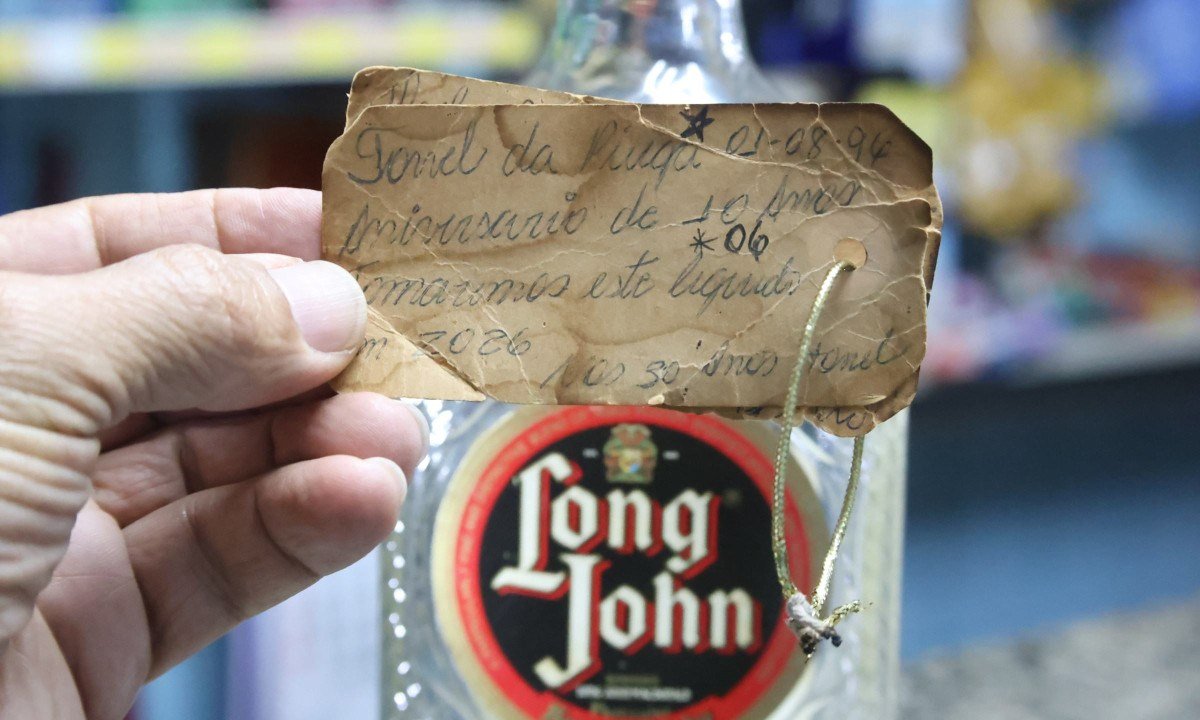 Tonel da Pinga ★ 01-08-94
Aniversario de 10 Anos
* 06
Tomaremos este liquido
m 2026
Nos 30 Anos tonel
Long
John